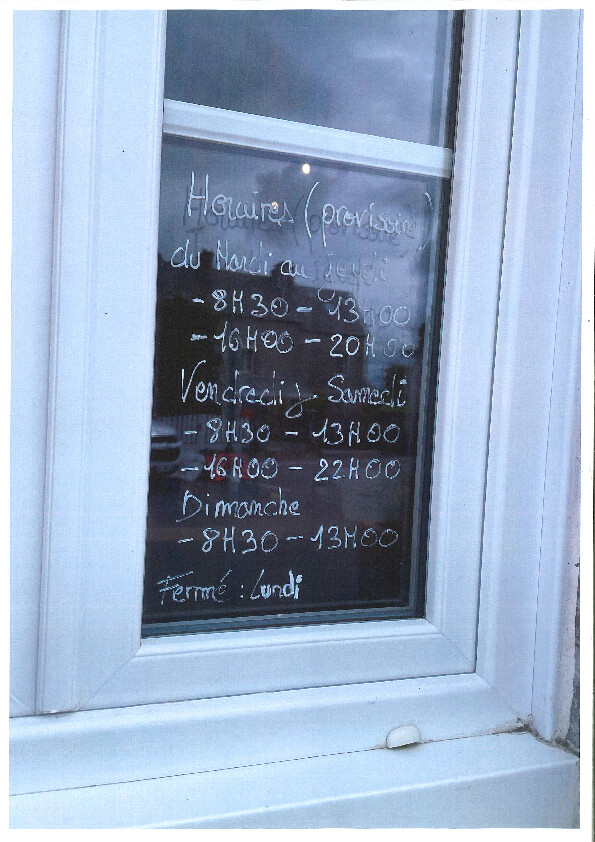 Horaires (provissoire)
du Mardi au Jeudi
- 8H30 - 13H00
- 16H00 - 20H00
Vendredi y Samedi
- 8H30 - 13H00
- 16H00 - 22H00
Dimanche
- 8H30 - 13H00
Fermé : Lundi